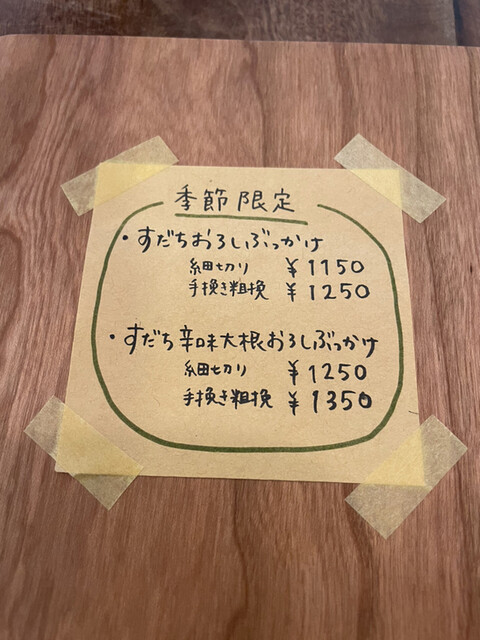 季節限定
・すだちおろしぶっかけ
細切り ¥1150
手挽き粗挽 ¥1250
・すだち辛味大根おろしぶっかけ
細切り ¥1250
手挽き粗挽 ¥1350